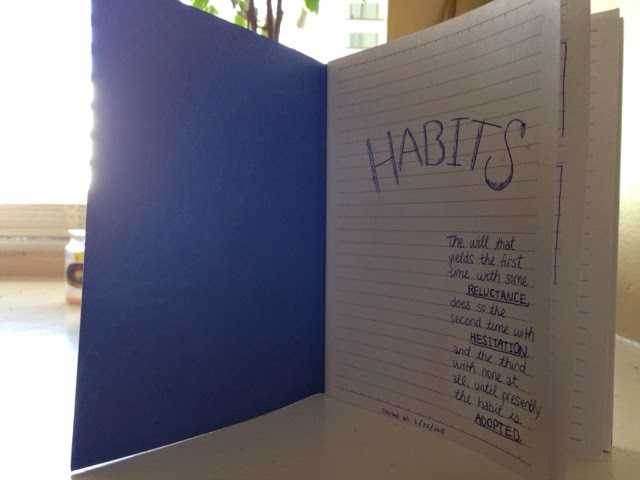 HABITS
The will that
yeilds the first
time with some
RELUCTANCE,
does so the
second time with
HESITATION,
and the third
with none at
all, until presently
the habit is
ADOPTED.
started on